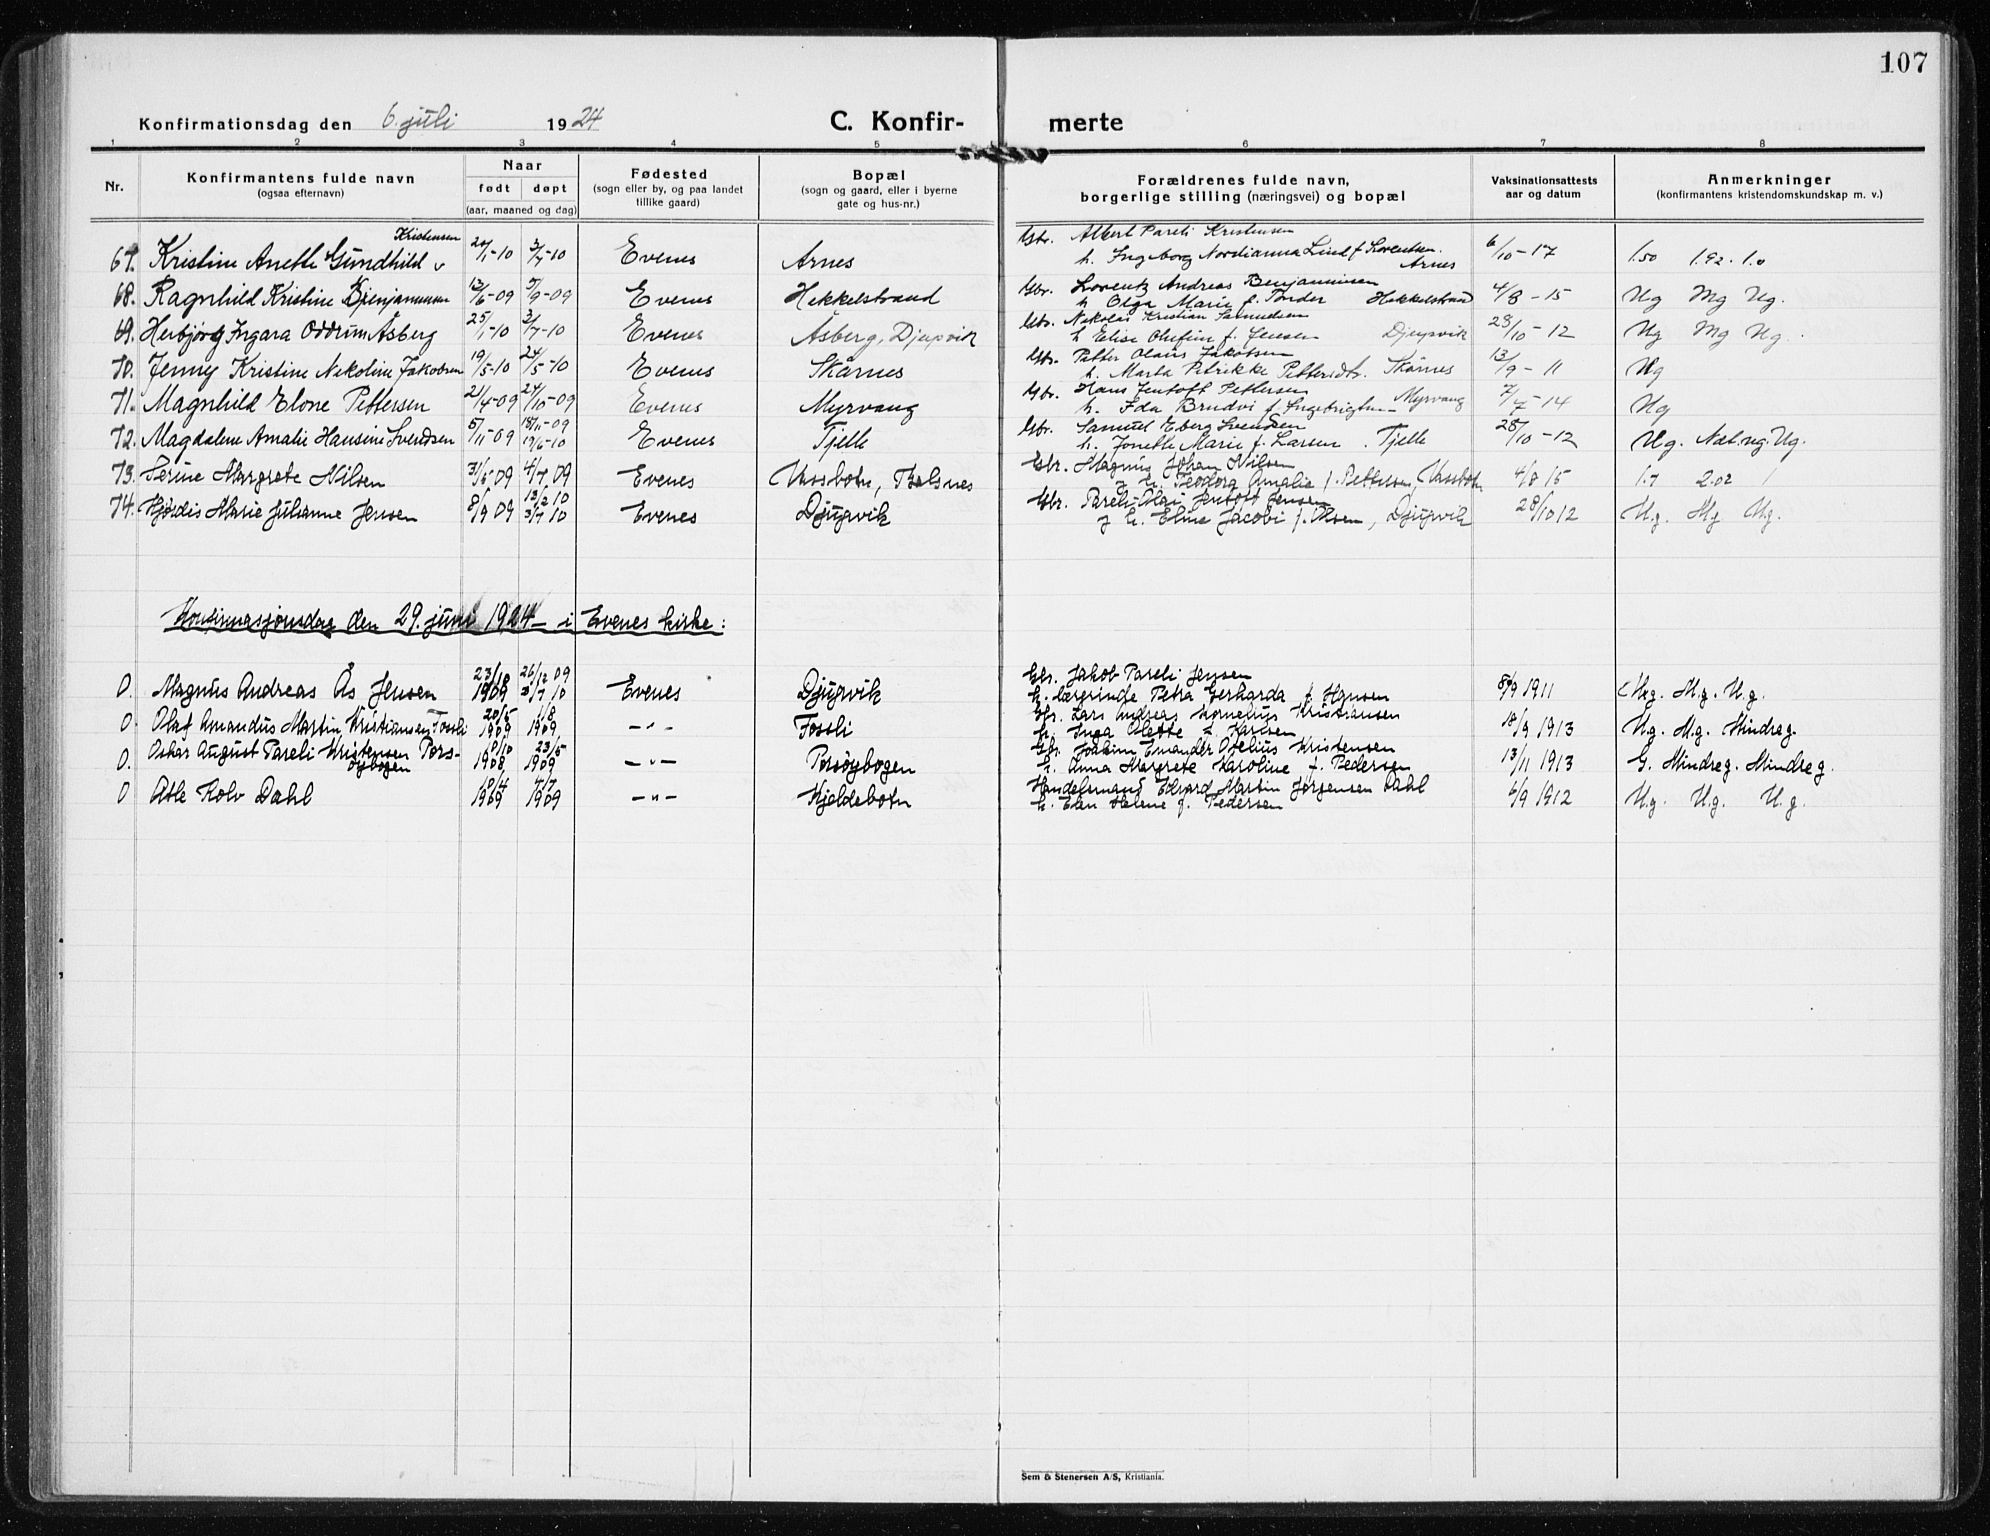 107
Konfirmationsdag den 6. juli 1924 C. Konfir- merte
1 2 3 4 5 6 7 8
Nr. Konfirmantens fulde navn (ogsaa efternavn) Naar født døpt (aar, maaned og dag) Fødested (sogn eller by, og paa landet tillike gaard) Bopæl (sogn og gaard, eller i byerne gate og hus-nr.) Forældrenes fulde navn, borgerlige stilling (næringsvei) og bopæl Vaksinationsattests aar og datum Anmerkninger (konfirmantens kristendomskundskap m. v.)
Kristensen Gbr. Albert Pareli Kristensen
67. Kristine Anette Gundhild 3/4-10 Evenes Arnes h. Ingeborg Nordianna Lind f. Lorentsen. Arnes 6/10-17 1.50 1.92. 1.0
Gbr. Lorentz Andreas Benjaminsen
68. Ragnhild Kristine Benjaminsen 13/6-09 5/9-09 Evenes Hekkelstrand h Olga Marie f. Hekkelstrand 4/8-15 Ug Mg Ug.
Gbr. Nikolai Kristian Samuelsen
69. Herbjørg Ingara Oddrun Åsberg 25/1-10 3/7-10 Evenes Åsberg, Djupvik h Elise Olufine f. Jensen Djupvik 28/10-12 Ug Mg Ug.
Gbr. Petter Olaus Jakobsen
70. Jenny Kristine Nikoline Jakobsen 19/5-10 24/5-10 Evenes Skårnes h. Marta Petrikke Pettersdtr. Skårnes 13/9-11 Ug
Gbr. Hans Jentoft Pettersen
71. Magnhild Elone Pettersen 21/4-09 24/10-09 Evenes Myrvang h. Ida Brudvi f. Ingebrigtsen Myrvang 7/7-14 Ug
Gbr. Samuel Eberg Svendsen
72. Magdalene Amalie Hansine Svendsen 5/11-09 18/11-09 19/6-10 Evenes Tjelle h. Jonette Marie f. Larsen. Tjelle 28/10-12 Ug. Nat. ug. Ug.
Gbr. Magnus Johan Nilsen
73. Serine Margrete Nilsen 31/5 09 4/7 09 Evenes Vassbotn, h. Teodora Amalie f. Pettersen, Vassbotn 4/8 15 1.7 2.02 1
Gbr. Pareli Jentoft Jensen
74. Hjørdis Marie Julianne Jensen 8/9 09 13/2 10 3/7 10 Evenes Djupvik h. Elise Jacobi f. Olsen, Djupvik 28/10 12 U.g. M.g U.g.
Konfirmasjonsdag den 29. juni 1924 - i Evenes kirke:
Gbr. Jakob Pareli Jensen
0. Magnus Andreas Ås Jensen 1909 26/12 09 3/7 10 Evenes Djupvik h. Petra Gerharda f. Hansen 8/9 1911 Mg. M.g. U.g.
0. Olaf Amandus Martin Kristiansen Fossli 20/5 1909 1/8 1909 -"- Fossli Gbr. Lars Andreas Kornelius Kristiansen h. Inga Olette f. Karlsen 18/9 1913 U.g. M.g. Mindre g.
0. Oskar August Pareli Kristensen Porsøybogen 1908 23/5 1909 -"- Porsøybogen Gbr. Joakim Emander Ofelius Kristensen h. Anna Margrete Karoline f. Pedersen 13/11 1913 G. Mindre g. Mindre g.
0 Atle Kolv Dahl 18/4 1909 4/7 1909 -"- Kjeldebotn Handelsmand Edvard Martin Jørgensen Dahl h. Helene f. Pedersen 6/9 1912 U.g. U.g. U.g.
Sem & Stenersen A/S, Kristiania.